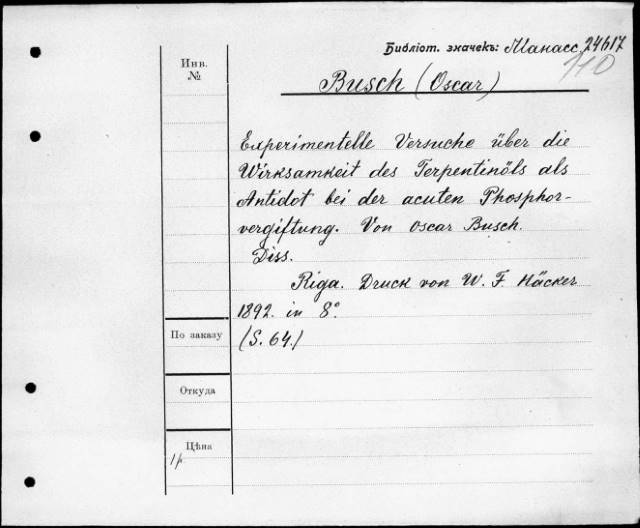 Библіот. значекъ: Манасс. 24617
110
Инв. №
Busch (Oscar)
Experimentelle Versuche über die
Wirksamkeit des Terpentinöls als
Antidot bei der acuten Phosphor-
vergiftung. Von Oscar Busch.
Diss.
Riga. Druck von W. F. Häcker
1892. in 8°.
По заказу
(S. 64.)
Откуда
Цѣна
1 р.